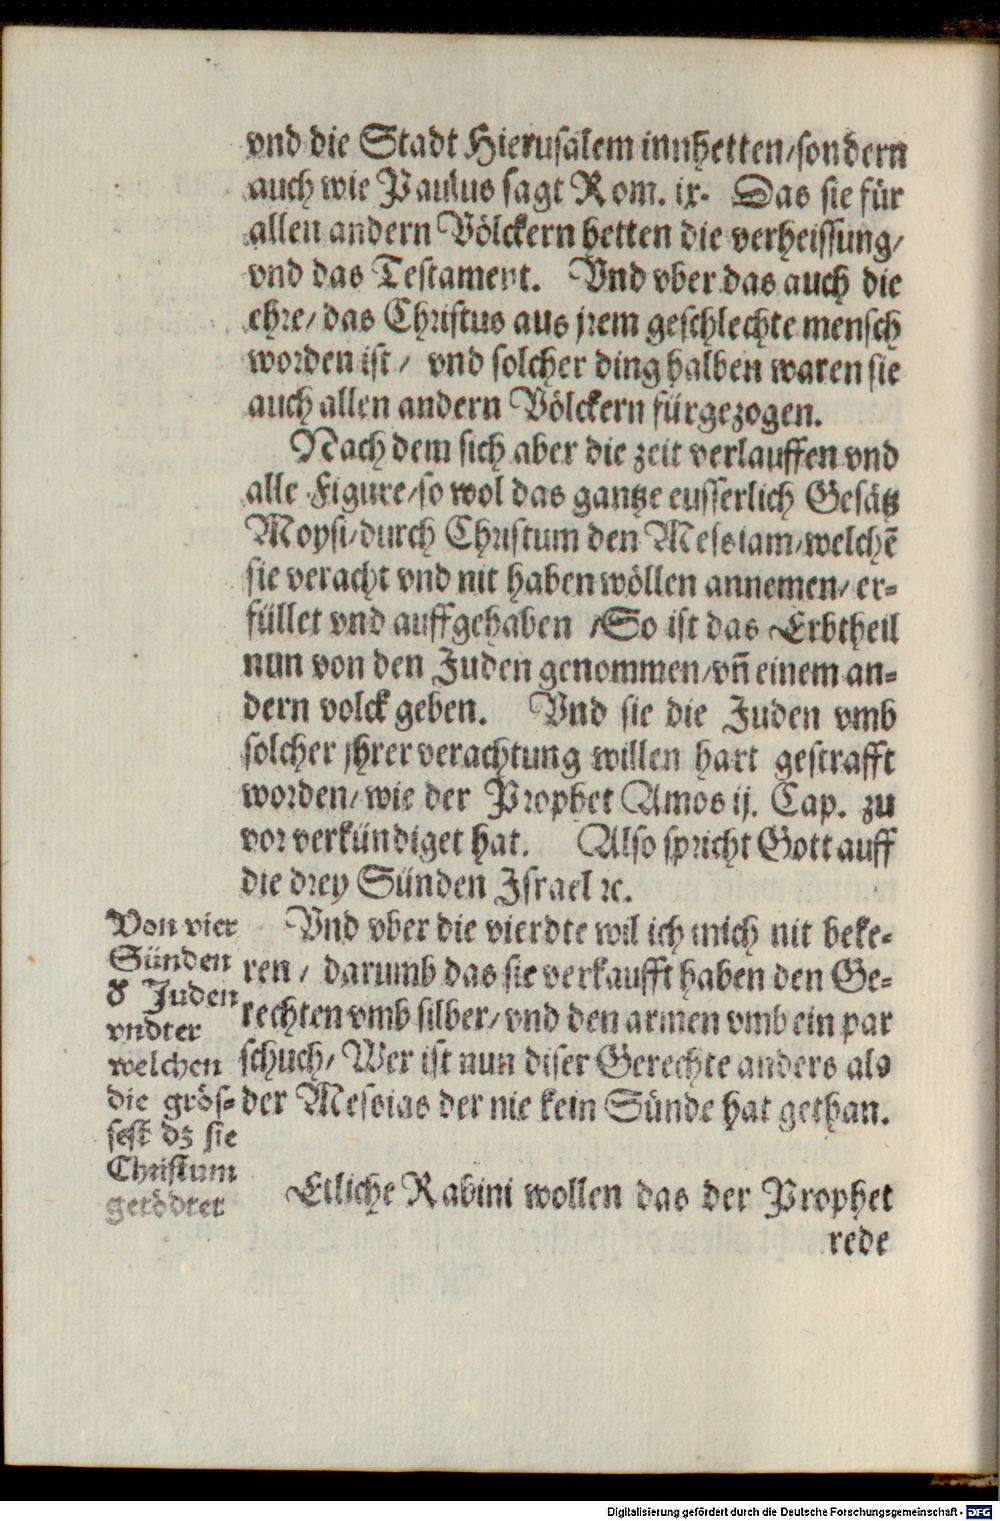 vnd die Stadt Hierusalem innhetten/sondern
auch wie Paulus sagt Rom. ix. Das sie für
allen andern Völckern hetten die verheissung/
vnd das Testament. Vnd vber das auch die
ehre/ das Christus aus jrem geschlechte mensch
worden ist/ vnd solcher ding halben waren sie
auch allen andern Völckern fürgezogen.
Nach dem sich aber die zeit verlauffen vnd
alle Figure/so wol das gantze eusserlich Gesätz
Moysi/durch Christum den Messiam/welchē
sie veracht vnd nit haben wöllen annemen/ er-
füllet vnd auffgehaben /So ist das Erbtheil
nun von den Juden genommen/vñ einem an-
dern volck geben. Vnd sie die Juden vmb
solcher jhrer verachtung willen hart gestrafft
worden/ wie der Prophet Amos ij. Cap. zu
vor verkündiget hat. Also spricht Gott auff
die drey Sünden Israel ꝛc.
Vnd vber die vierdte wil ich mich nit beke-
ren / darumb das sie verkaufft haben den Ge-
rechten vmb silber/ vnd den armen vmb ein par
schuch/ Wer ist nun diser Gerechte anders als
der Messias der nie kein Sünde hat gethan.
Von vier
Sünden
ď Juden
vndter
welchen
die grös-
sest dz sie
Christum
getödtet
Etliche Rabini wollen das der Prophet
rede
Digitalisierung gefördert durch die Deutsche Forschungsgemeinschaft - DFG